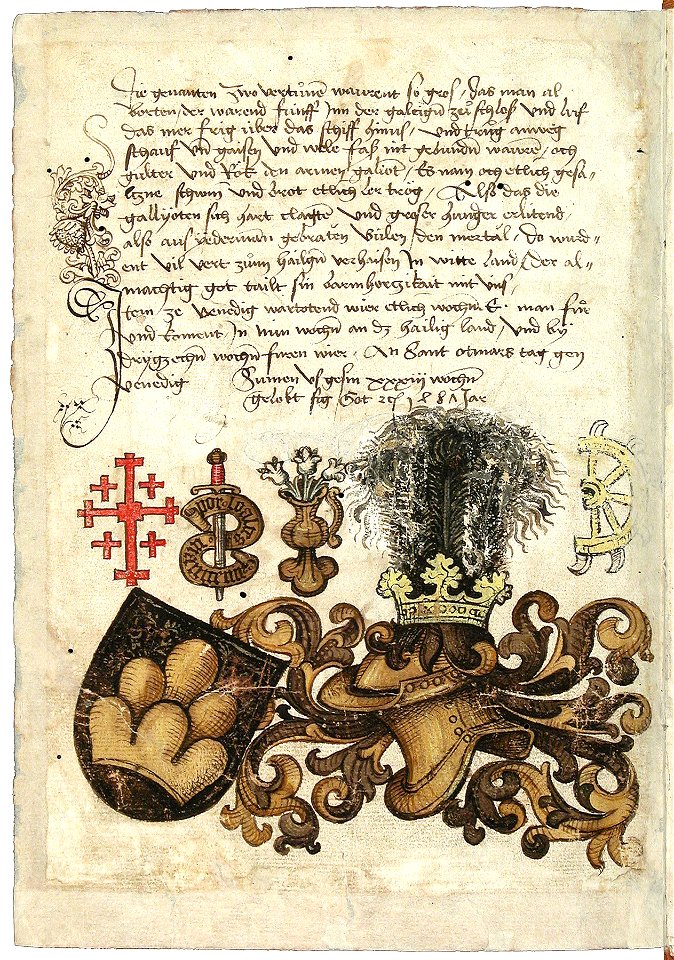 Die genanten zwo vertuͦnē warent so gros / das man al
borten / der warend fünff Inn der galeigū zuͦ schloß und lüf
das mer frig über das schiff hinus / und truͦg anweg
schauf un̄ gaisen und wele faß nit gebundū warēn / och
gulter und Rök den armen galiot / Es nam och etlich gesa=
lzne schwinī und brot etlich ler trög / Also das die
galliyoten sich hart clagten und groser hunger erlitend /
also aus yederman gebraten den mertal / do wurd=
ent vil vert zuͦm hailgū verhaisen In witte land / der al=
mächtig got tailt sin barmherzikait mit uns /
Item ze venedig wartotend wier etlich wochū man für
und koment In nun wochū an dz hailig land / und by
drygzechū wochū furen wier / An Sant otmars tag gen
venedig Sumen us gesin xxxiii wochū
Gelobt sig Got 1481 Jar
por